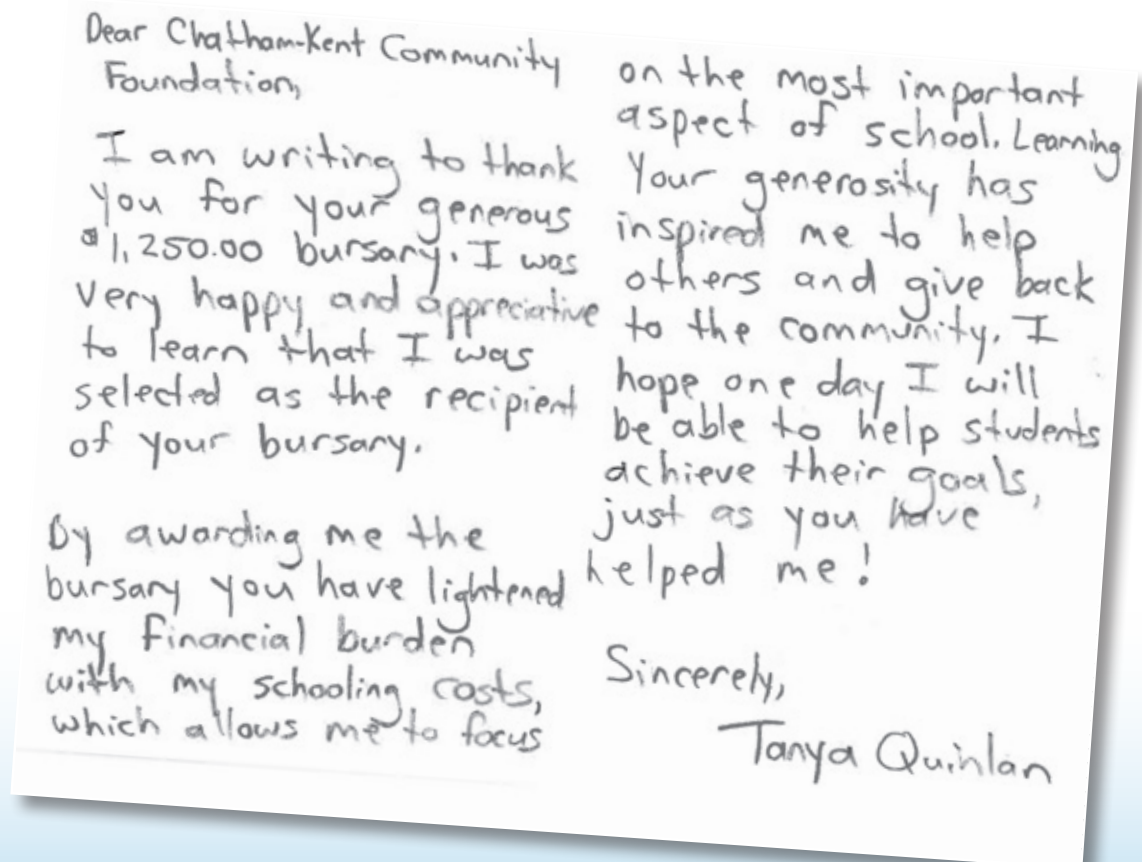 Dear Chatham-Kent Community
Foundation,
I am writing to thank
you for your generous
$1,250.00 bursary. I was
very happy and appreciative
to learn that I was
selected as the recipient
of your bursary.
By awarding me the
bursary you have lightened
my financial burden
with my schooling costs,
which allows me to focus
on the most important
aspect of school. Learning
Your generosity has
inspired me to help
others and give back
to the community. I
hope one day I will
be able to help students
achieve their goals,
just as you have
helped me!
Sincerely,
Tanya Quinlan